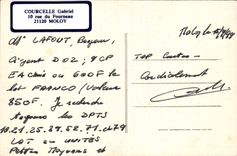 COURCELLE Gabriel
10 rue du Fourneau
21120 MOLOY
Moloy le
Mr LAFOUT Bayeux,
Ayant DO2; 9CP
EA Choix ou 600F le
lot FRANCO (Valeur
850F. Je recherche
toujours les DPTS
10.21.25.39.58.71.ch79
LOT ou UNITÉS
Petites Moyennes et
TOP Cartes
Cordialement